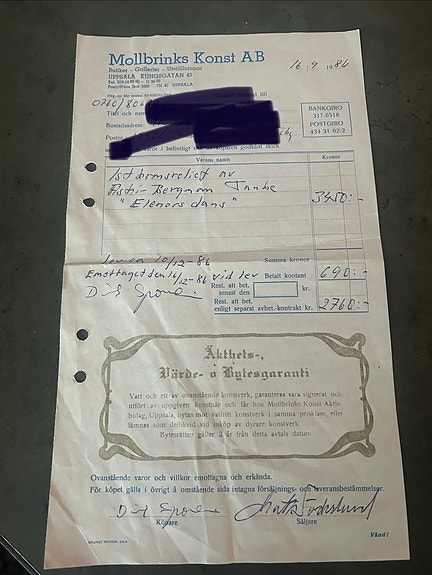 Mollbrinks Konst AB
Butiker - Gallerier - Utställningar
UPPSALA KUNGSGATAN 43
751 40 UPPSALA
16/9 1986
0760/806
BANKGIRO
317-6518
POSTGIRO
434 31 02-2
Titel och namn
Bostadsadress
Varans namn
Kronor
1 st bronsrelief av
Astri Bergman Taube
"Elenors dans"
3450:-
10/12-86
Summa kronor
Emottaget den 16/12-86 vid lev
Betalt kontant
690:-
Rest. att bet.
senast den
kr.
Rest. att bet.
enligt separat avbet.-kontrakt kr.
2760:-
Äkthets-,
Värde- o Bytesgaranti
Vart och ett av ovanstående konstverk, garanteras vara signerat och
utfört av uppgiven konstnär och får hos Mollbrinks Konst Aktie-
bolag, Uppsala, bytas mot valfritt konstverk i samma prisklass, eller
lämnas som dellikvid vid inköp av dyrare konstverk
Bytesrätten gäller 2 år från detta avtals datum
Ovanstående varor och villkor emottagna och erkända.
För köpet gälla i övrigt å omstående sida intagna försäljnings- och leveransbestämmelser.
Köpare
Säljare
Vänd!